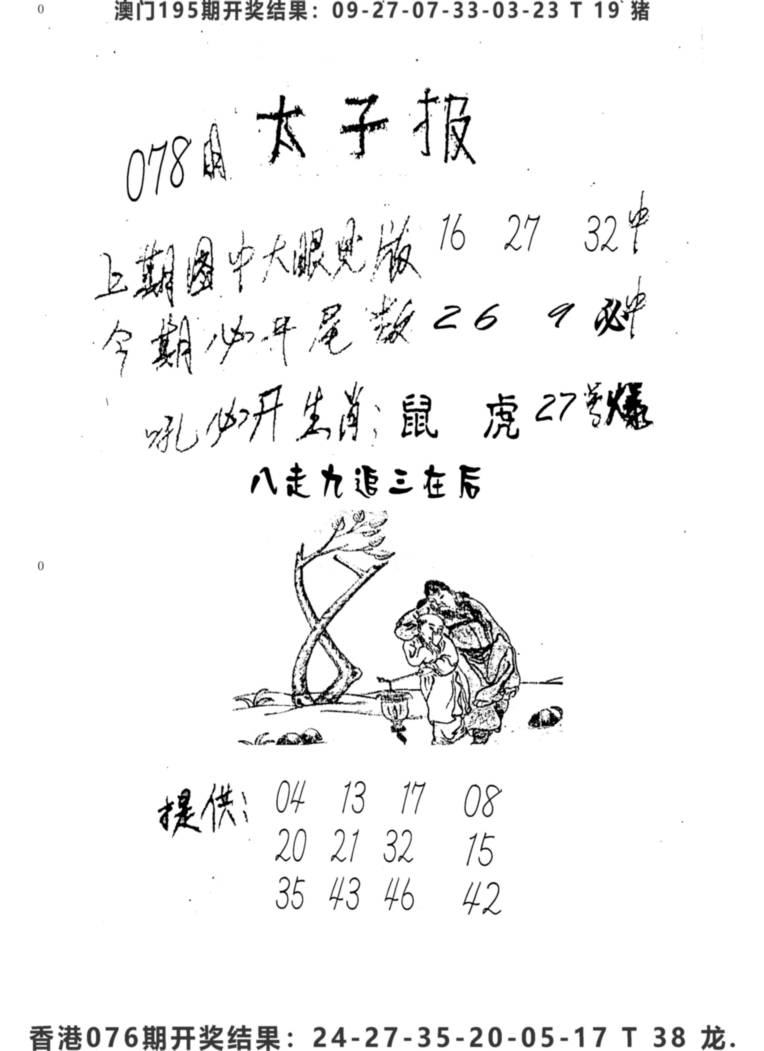 0
澳门195期开奖结果：09-27-07-33-03-23 T 19 猪
太子报
078期
上期图中大眼见版 16 27 32中
今期必开尾数 2 6 9 必中
吼必开生肖：鼠 虎 27号爆
八走九追三在后
0
提供： 04 13 17 08
20 21 32 15
35 43 46 42
香港076期开奖结果：24-27-35-20-05-17 T 38 龙.